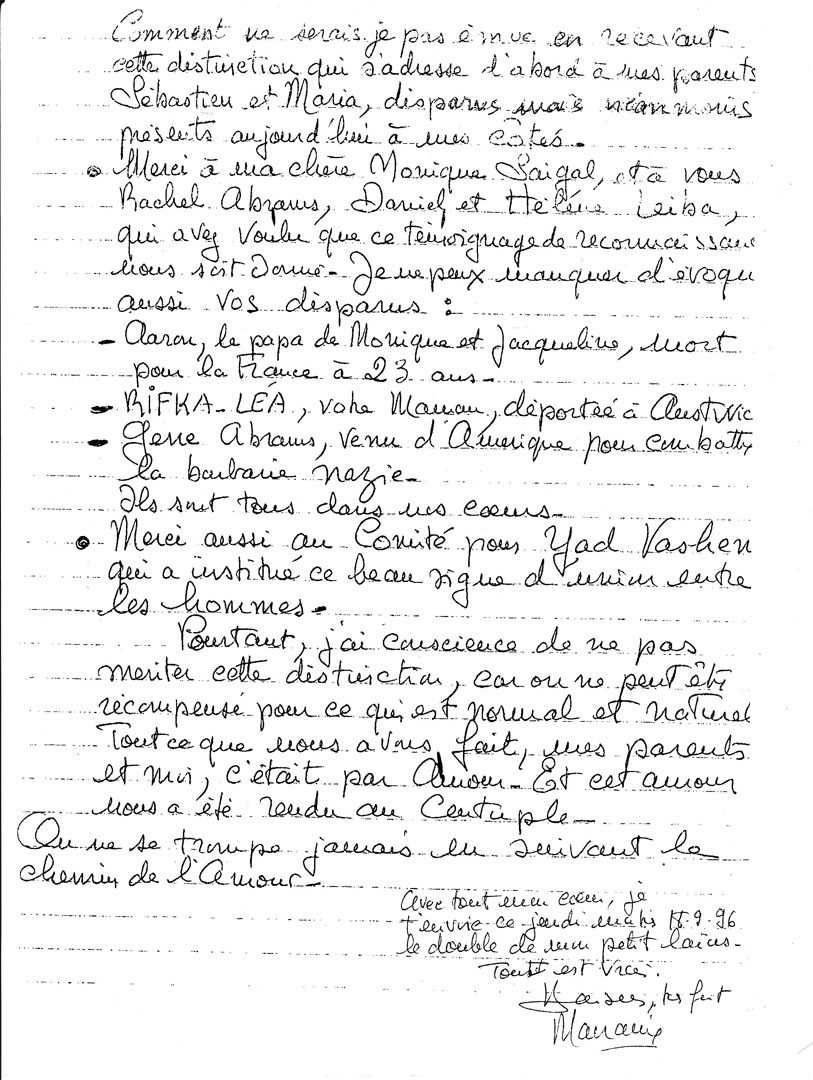 Comment ne serais-je pas émue en recevant
cette distinction qui s'adresse d'abord à mes parents
Sébastien et Maria, disparus mais néanmoins
présents aujourd'hui à mes côtés.
• Merci à ma chère Monique Saigal, et à vous
Rachel Abrams, Daniel et Hélène Leiba,
qui avez voulu que ce témoignage de reconnaissan
nous soit donné - Je ne peux manquer d'évoqu
aussi vos disparus :
- Aaron, le papa de Monique et Jacqueline, mort
pour la France à 23 ans -
- RIFKA-LÉA, votre Maman, déportée à
- Gene Abrams, venu d'Amérique pour combattr
la barbarie nazie -
Ils sont tous dans nos cœurs -
• Merci aussi au Comité pour Yad Vashem
qui a institué ce beau signe d'union entre
les hommes -
Pourtant, j'ai conscience de ne pas
mériter cette distinction, car on ne peut être
récompensé pour ce qui est normal et naturel
Tout ce que nous avons fait, mes parents
et moi, c'était par Amour - Et cet amour
nous a été rendu au Centuple -
On ne se trompe jamais en suivant le
chemin de l'Amour -
Avec tout mon cœur, je
t'envoie ce jeudi matin 9.96
le double de mon petit laïus -
Tout est vrai.
Baisers, très fort